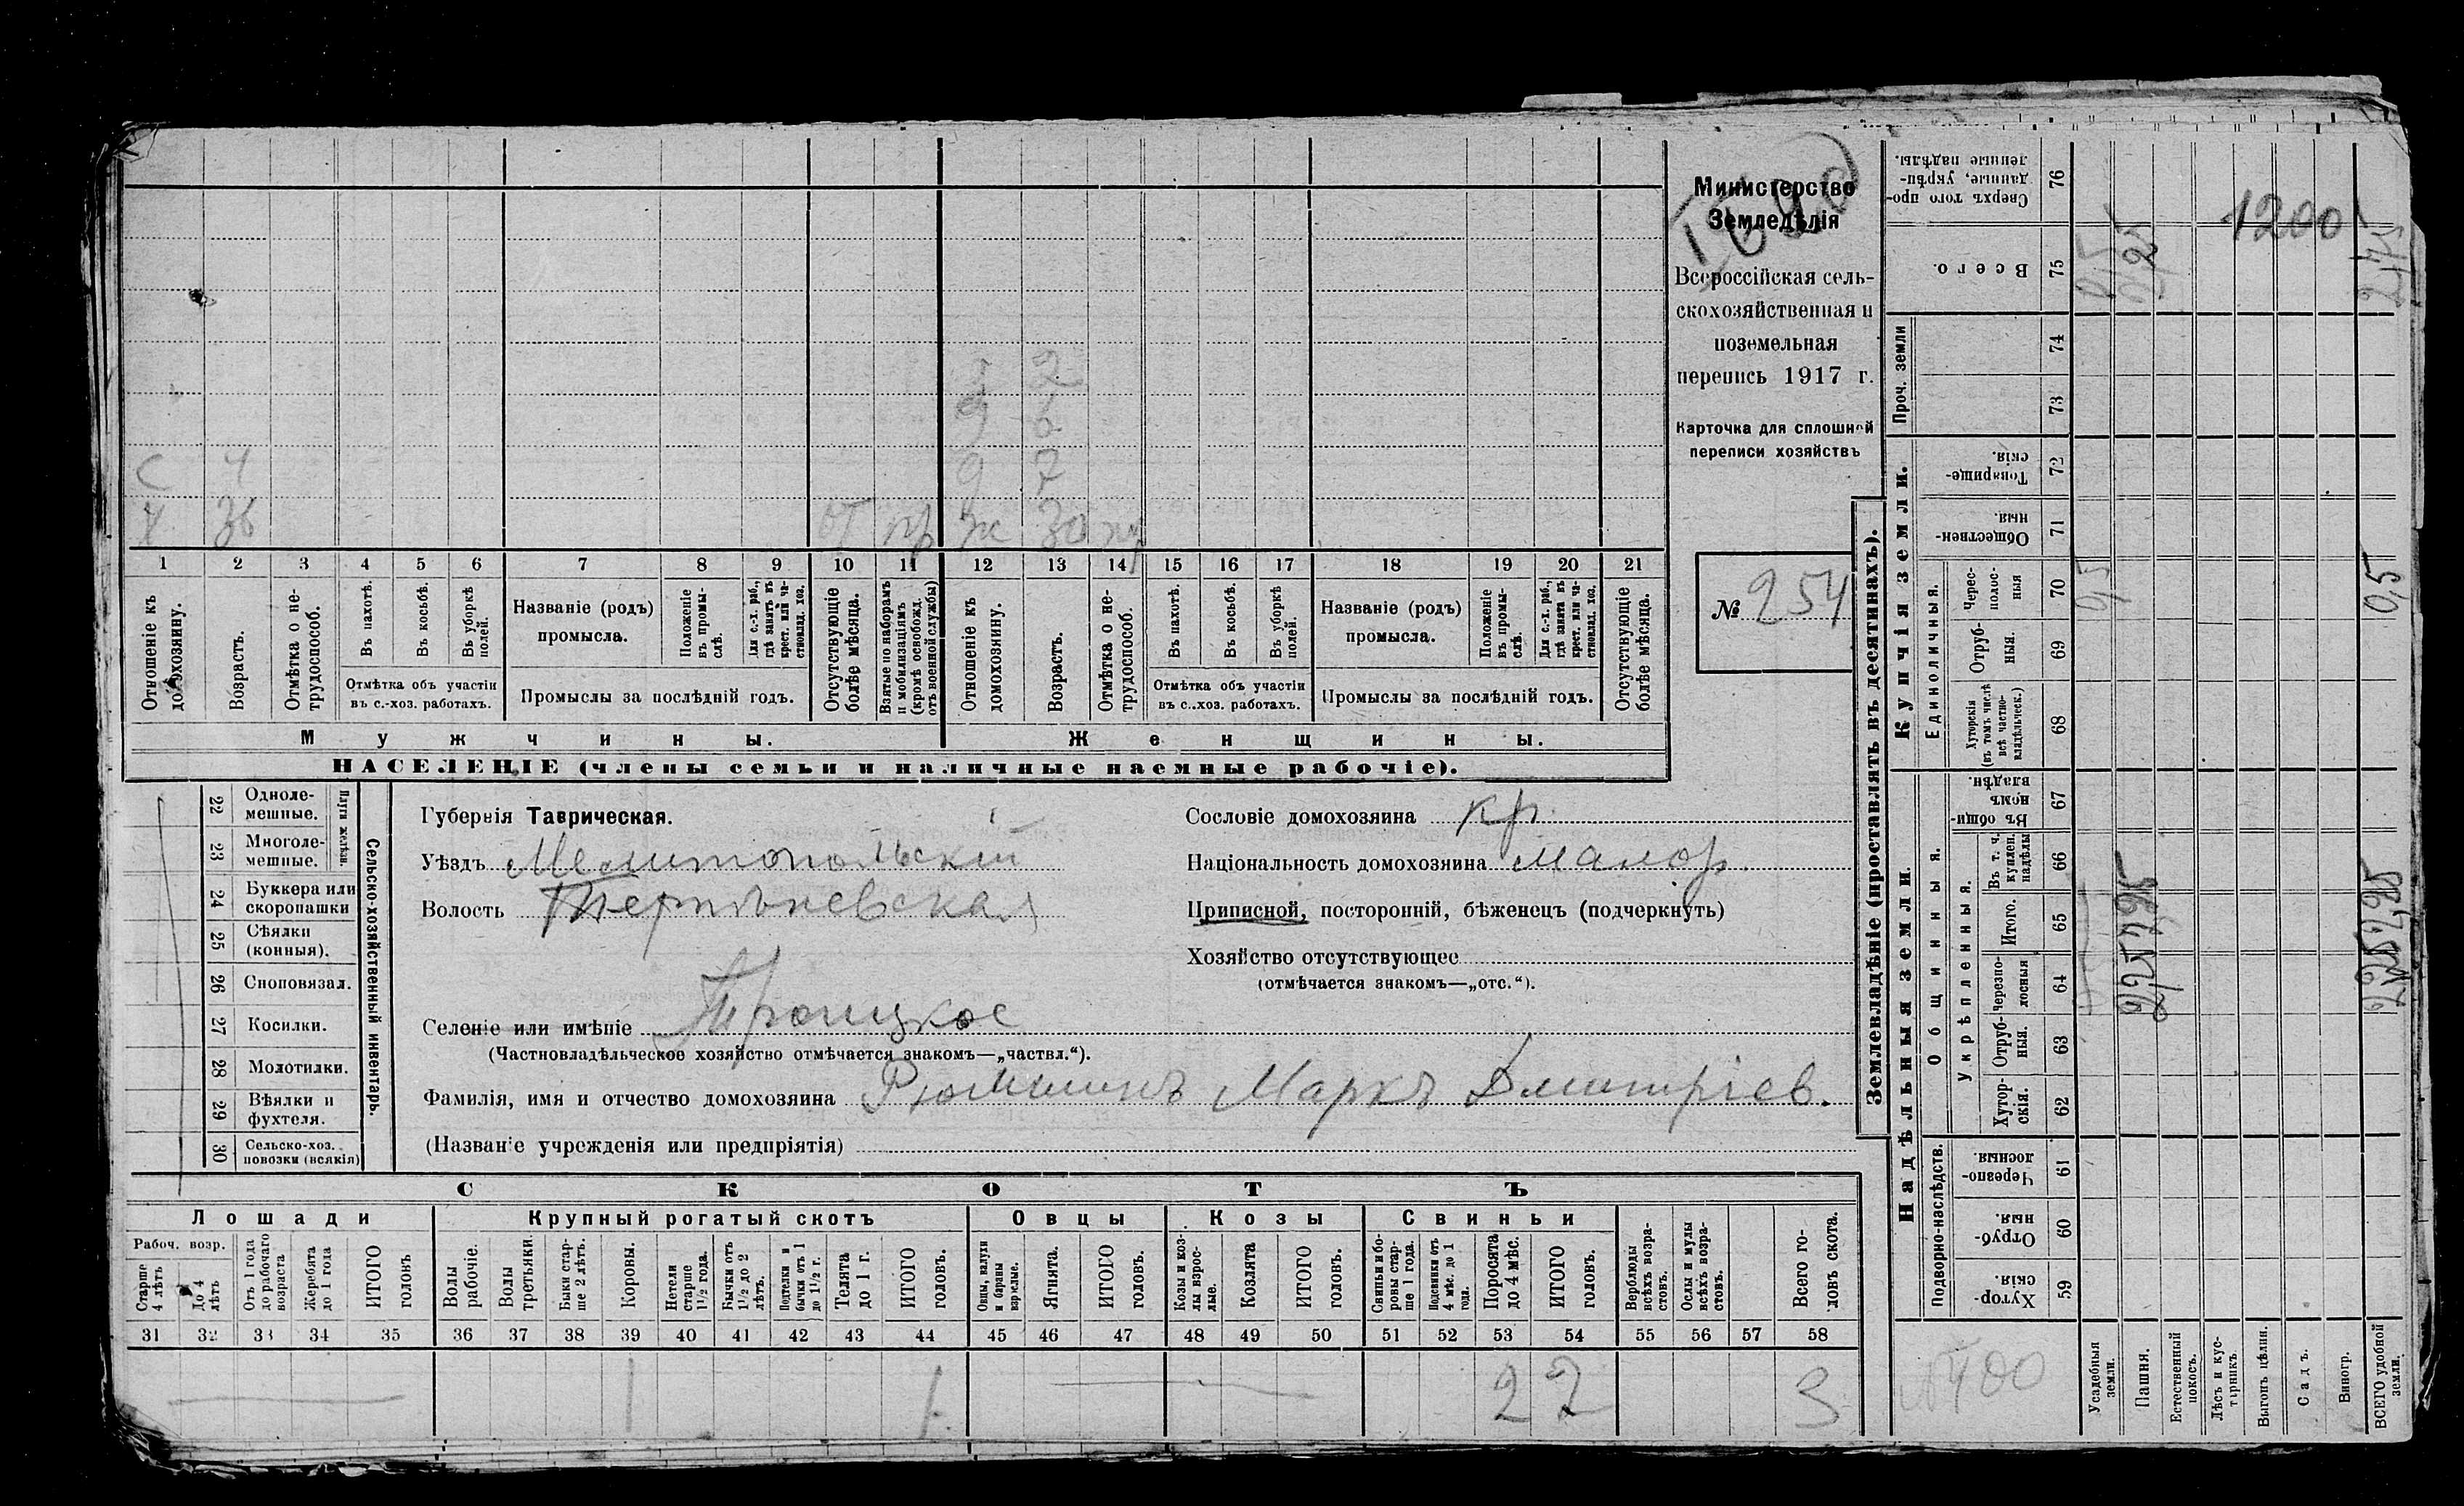 Министерство
Земледѣлія
Всероссійская сель-
скохозяйственная и
поземельная
перепись 1917 г.
Карточка для сплошной
переписи хозяйствъ
№ 254
с 4 д 2
д 6
д 7
х 36 от пр ж 30
1 2 3 4 5 6 7 8 9 10 11 12 13 14 15 16 17 18 19 20 21
Отношеніе къ домохозяину.
Возрастъ.
Отмѣтка о не-
трудоспособ.
Въ пахотѣ.
Въ косьбѣ.
Въ уборкѣ
полей.
Отмѣтка объ участіи
въ с.-хоз. работахъ.
Названіе (родъ)
промысла.
Положеніе
въ промы-
слѣ.
Для с.-х. раб.,
гдѣ занятъ въ
крест. или ча-
стновлад. хоз.
Промыслы за послѣдній годъ.
Отсутствующіе
болѣе мѣсяца.
Взятые по наборамъ
и мобилизаціямъ
(кромѣ освобожд.
отъ военной службы)
Отношеніе къ
домохозяину.
Возрастъ.
Отмѣтка о не-
трудоспособ.
Въ пахотѣ.
Въ косьбѣ.
Въ уборкѣ
полей.
Отмѣтка объ участіи
въ с.-хоз. работахъ.
Названіе (родъ)
промысла.
Положеніе
въ промы-
слѣ.
Для с.-х. раб.,
гдѣ занята въ
крест. или ча-
стновлад. хоз.
Промыслы за послѣдній годъ.
Отсутствующіе
болѣе мѣсяца.
Мужчины. Женщины.
НАСЕЛЕНІЕ (члены семьи и наличные наемные рабочіе).
22 Одноле-
мешные.
23 Многоле-
мешные.
Плуги желѣзн.
24 Буккера или
скоропашки
25 Сѣялки
(конныя).
26 Сноповязал.
27 Косилки.
28 Молотилки.
29 Вѣялки и
фухтеля.
30 Сельско-хоз.
повозки (всякія)
Сельско-хозяйственный инвентарь.
Губернія Таврическая.
Уѣздъ Мелитопольскій
Волость Терпѣньевская
Селеніе или имѣніе Троицкое
(Частновладѣльческое хозяйство отмѣчается знакомъ—„частвл.“).
Фамилія, имя и отчество домохозяина Рюминъ Маркъ Дмитріев.
(Названіе учрежденія или предпріятія)
Сословіе домохозяина кр.
Національность домохозяина малор.
Приписной, посторонній, бѣженецъ (подчеркнуть)
Хозяйство отсутствующее
(отмѣчается знакомъ—„отс.“).
СКОТЪ
Лошади Крупный рогатый скотъ Овцы Козы Свиньи
Рабоч. возр.
Старше
4 лѣтъ
До 4
лѣтъ
Отъ 1 года
до рабочаго
возраста
Жеребята
до 1 года
ИТОГО
головъ
Волы
рабочіе.
Волы
третьяки.
Быки стар-
ше 2 лѣтъ.
Коровы.
Нетели
старше
1½ года.
Бычки отъ
1½ до 2
лѣтъ.
Подтелки и
бычки отъ 1
до 1½ г.
Телята
до 1 г.
ИТОГО
головъ.
Овцы, валухи
и бараны
взрослые.
Ягнята.
ИТОГО
головъ.
Козы и коз-
лы взрос-
лые.
Козлята
ИТОГО
головъ.
Свиньи и бо-
ровы стар-
ше 1 года.
Подсвинки отъ
4 мѣс. до 1
года.
Поросята
до 4 мѣс.
ИТОГО
головъ.
Верблюды
всѣхъ возра-
стовъ.
Ослы и мулы
всѣхъ возра-
стовъ.
Всего го-
ловъ скота.
31 32 33 34 35 36 37 38 39 40 41 42 43 44 45 46 47 48 49 50 51 52 53 54 55 56 57 58
1 1 2 2 3
Землевладѣніе (проставлять въ десятинахъ).
Надѣльныя земли. Купчія земли. Проч. земли
Подворно-наслѣдств. Общинныя. Единоличныя.
Укрѣпленныя.
Хутор-
скія.
Отруб-
ныя.
Черезпо-
лосныя
Хутор-
скія.
Отруб-
ныя.
Черезпо-
лосныя
Итого.
Въ т. ч.
куплен.
надѣлы
Въ общин-
номъ
владѣн.
Хуторскія
(въ томъ числѣ
всѣ частно-
владѣльческ.)
Отруб-
ныя.
Черес-
полос-
ныя
Обществен-
ныя.
Товарище-
скія.
Всего.
Сверхъ того про-
данные, укрѣп-
ленные надѣлы.
59 60 61 62 63 64 65 66 67 68 69 70 71 72 73 74 75 76
Усадебныя
земли.
0,5 0,5
Пашня.
2,25 2,25
Естественный
покосъ.
Лѣсъ и кус-
тарникъ.
Выгонъ цѣлин.
Садъ.
Виногр.
ВСЕГО удобной
земли.
2,25 0,5 2,75
1200